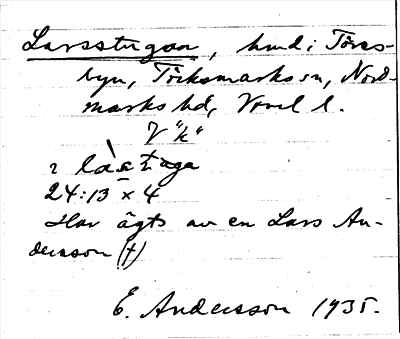 Larsstugan, hmd i Töres-
byn, Töcksmarks sn, Nord-
marks hd, Vrml l.
V "k"
2 làstùga
24:13 x 4
Har ägts av en Lars An-
dersson (†)
E. Andersson 1935.